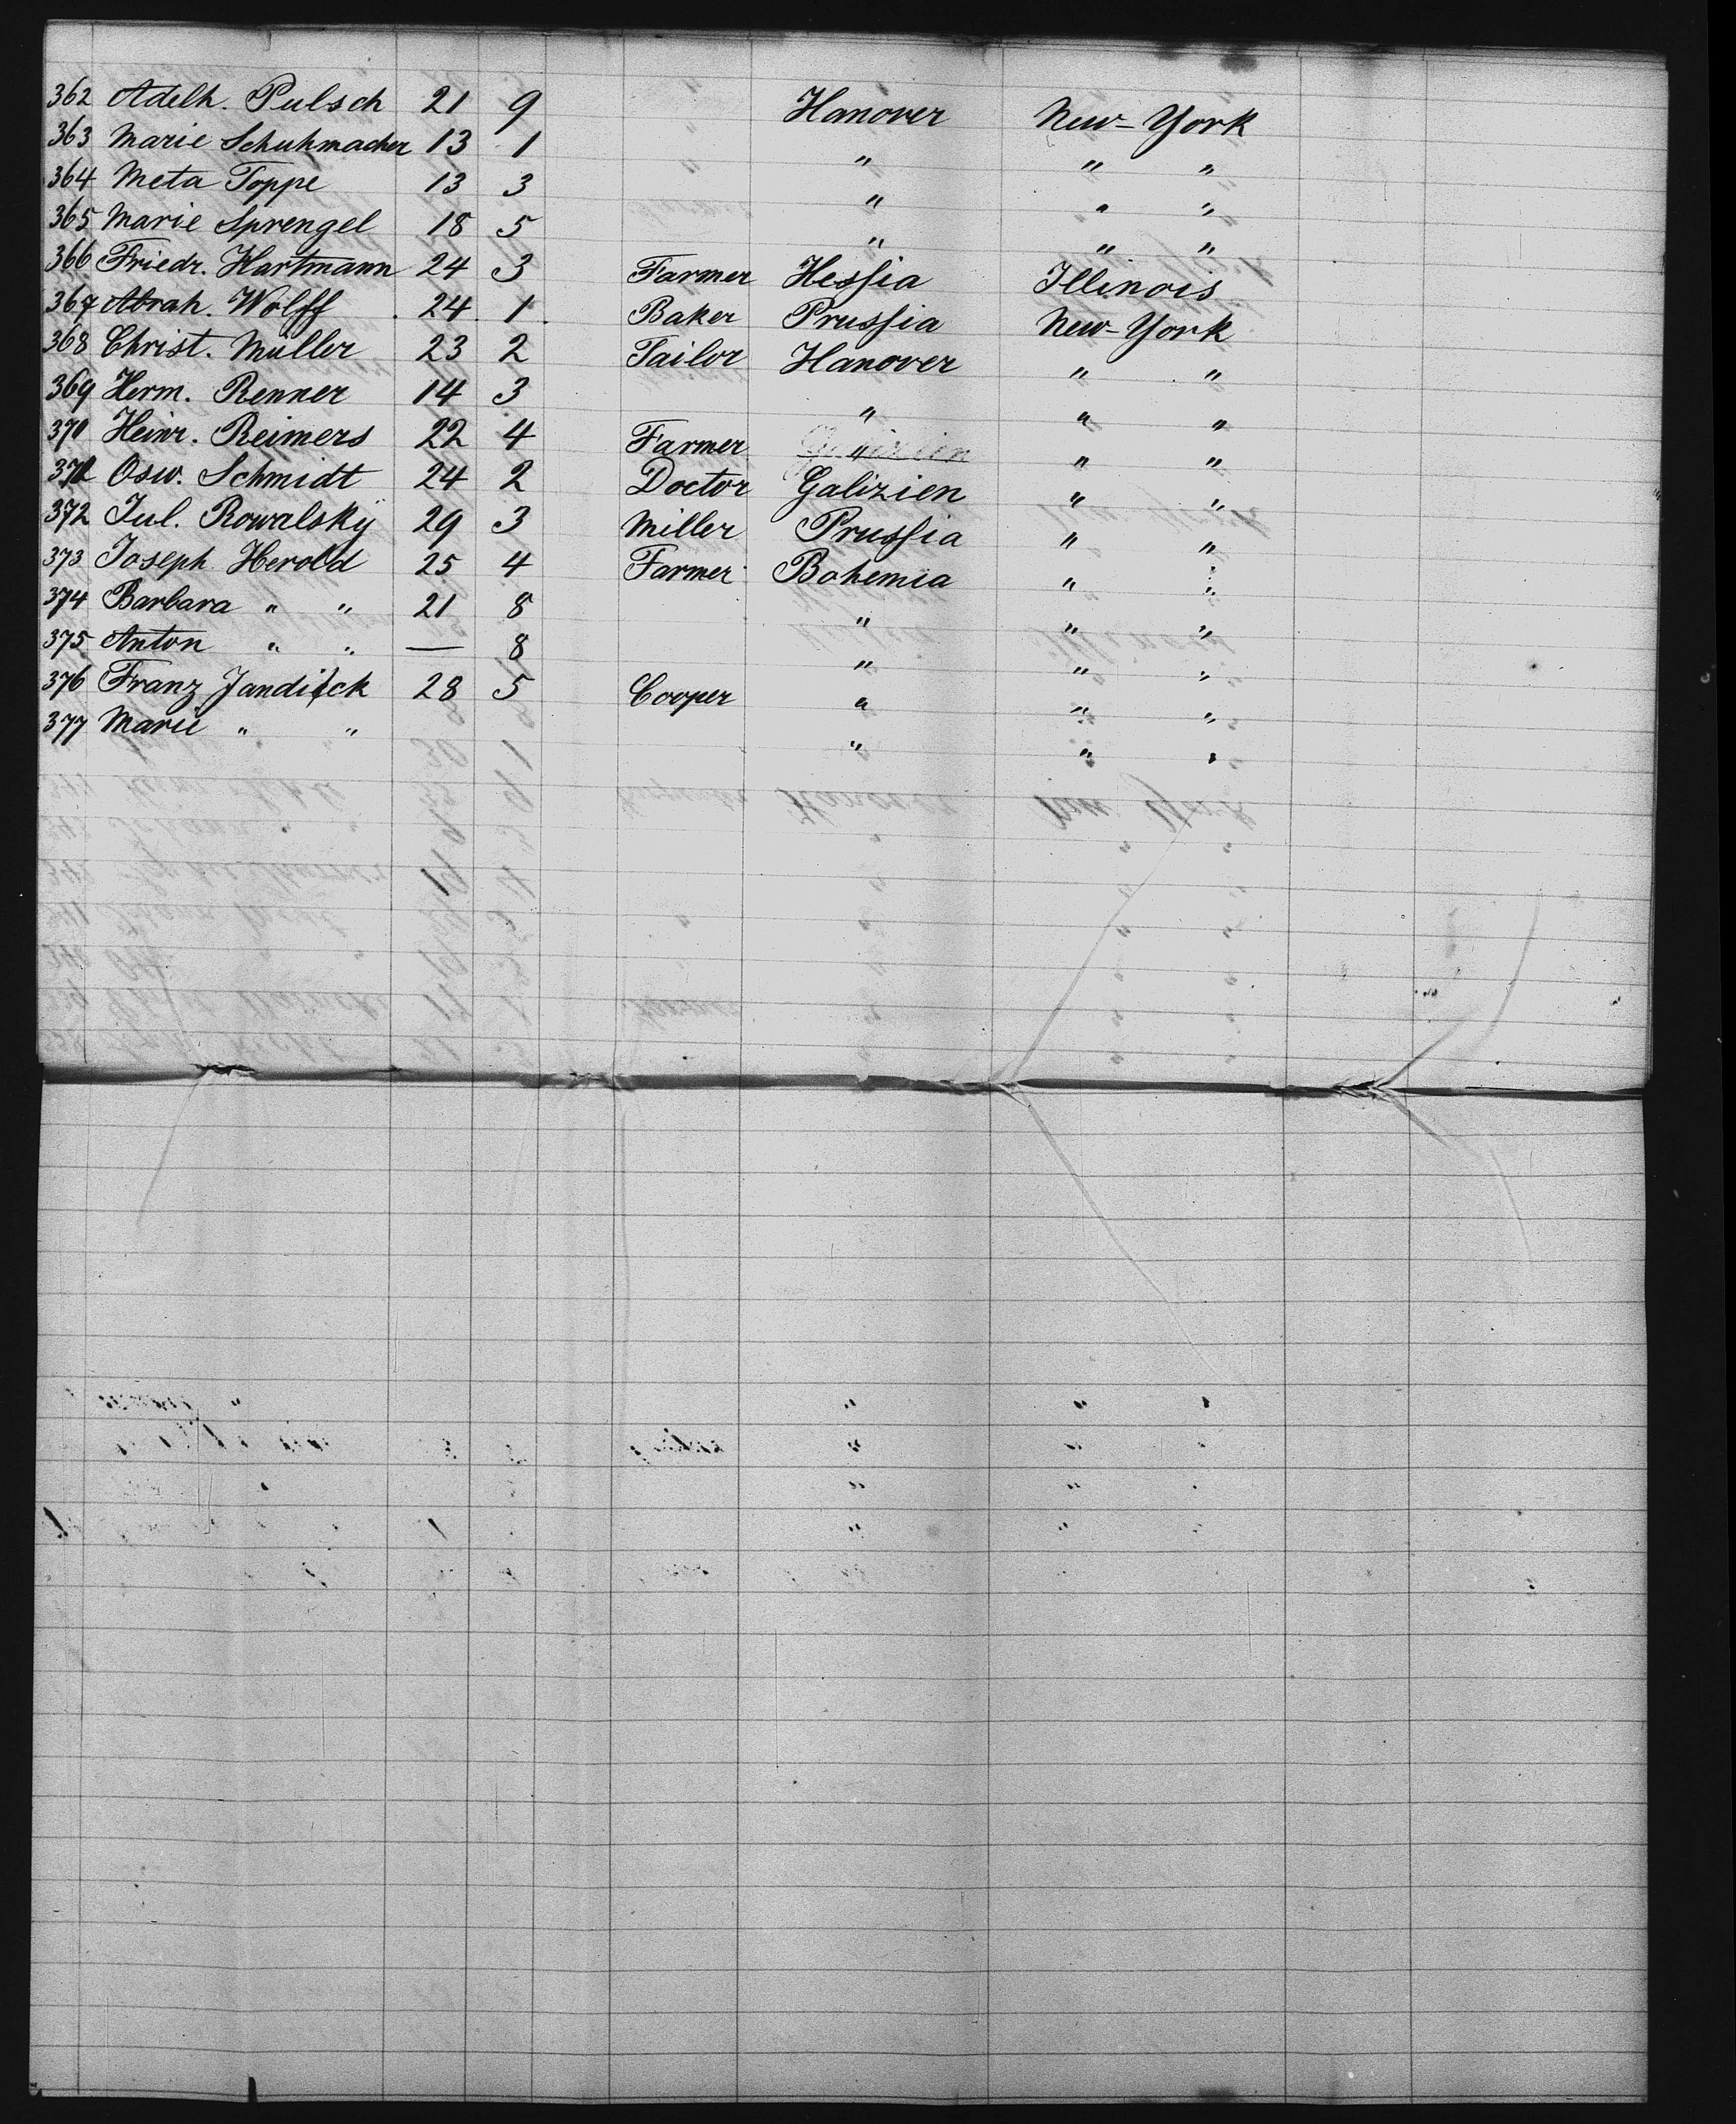 362 Adelh. Pulsch 21 9 Hanover New-York
363 Marie Schuhmacher 13 1 " " "
364 Meta Toppe 13 3 " " "
365 Marie Sprengel 18 5 " " "
366 Friedr. Hartmann 24 3 Farmer Hessia Illinois
367 Abrah. Wolff 24 1 Baker Prussia New-York
368 Christ. Müller 23 2 Tailor Hanover " "
369 Herm. Renner 14 3 " " "
370 Heinr. Reimers 22 4 Farmer " " "
371 Osw. Schmidt 24 2 Doctor Galizien " "
372 Jul. Rowalsky 29 3 Miller Prussia " "
373 Joseph Herold 25 4 Farmer Bohemia " "
374 Barbara " " 21 8 " " "
375 Anton " " — 8 " " "
376 Franz 28 5 Cooper " " "
377 Marie " " " " "